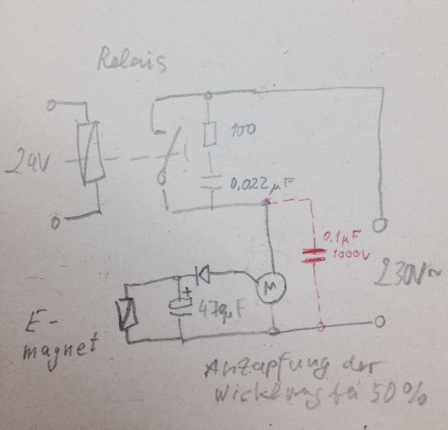 Relais
100
24V
0,022 µF
0.1µF
1000V
230V~
M
+
47µF
E-
magnet
Anzapfung der
Wicklung bei 50%